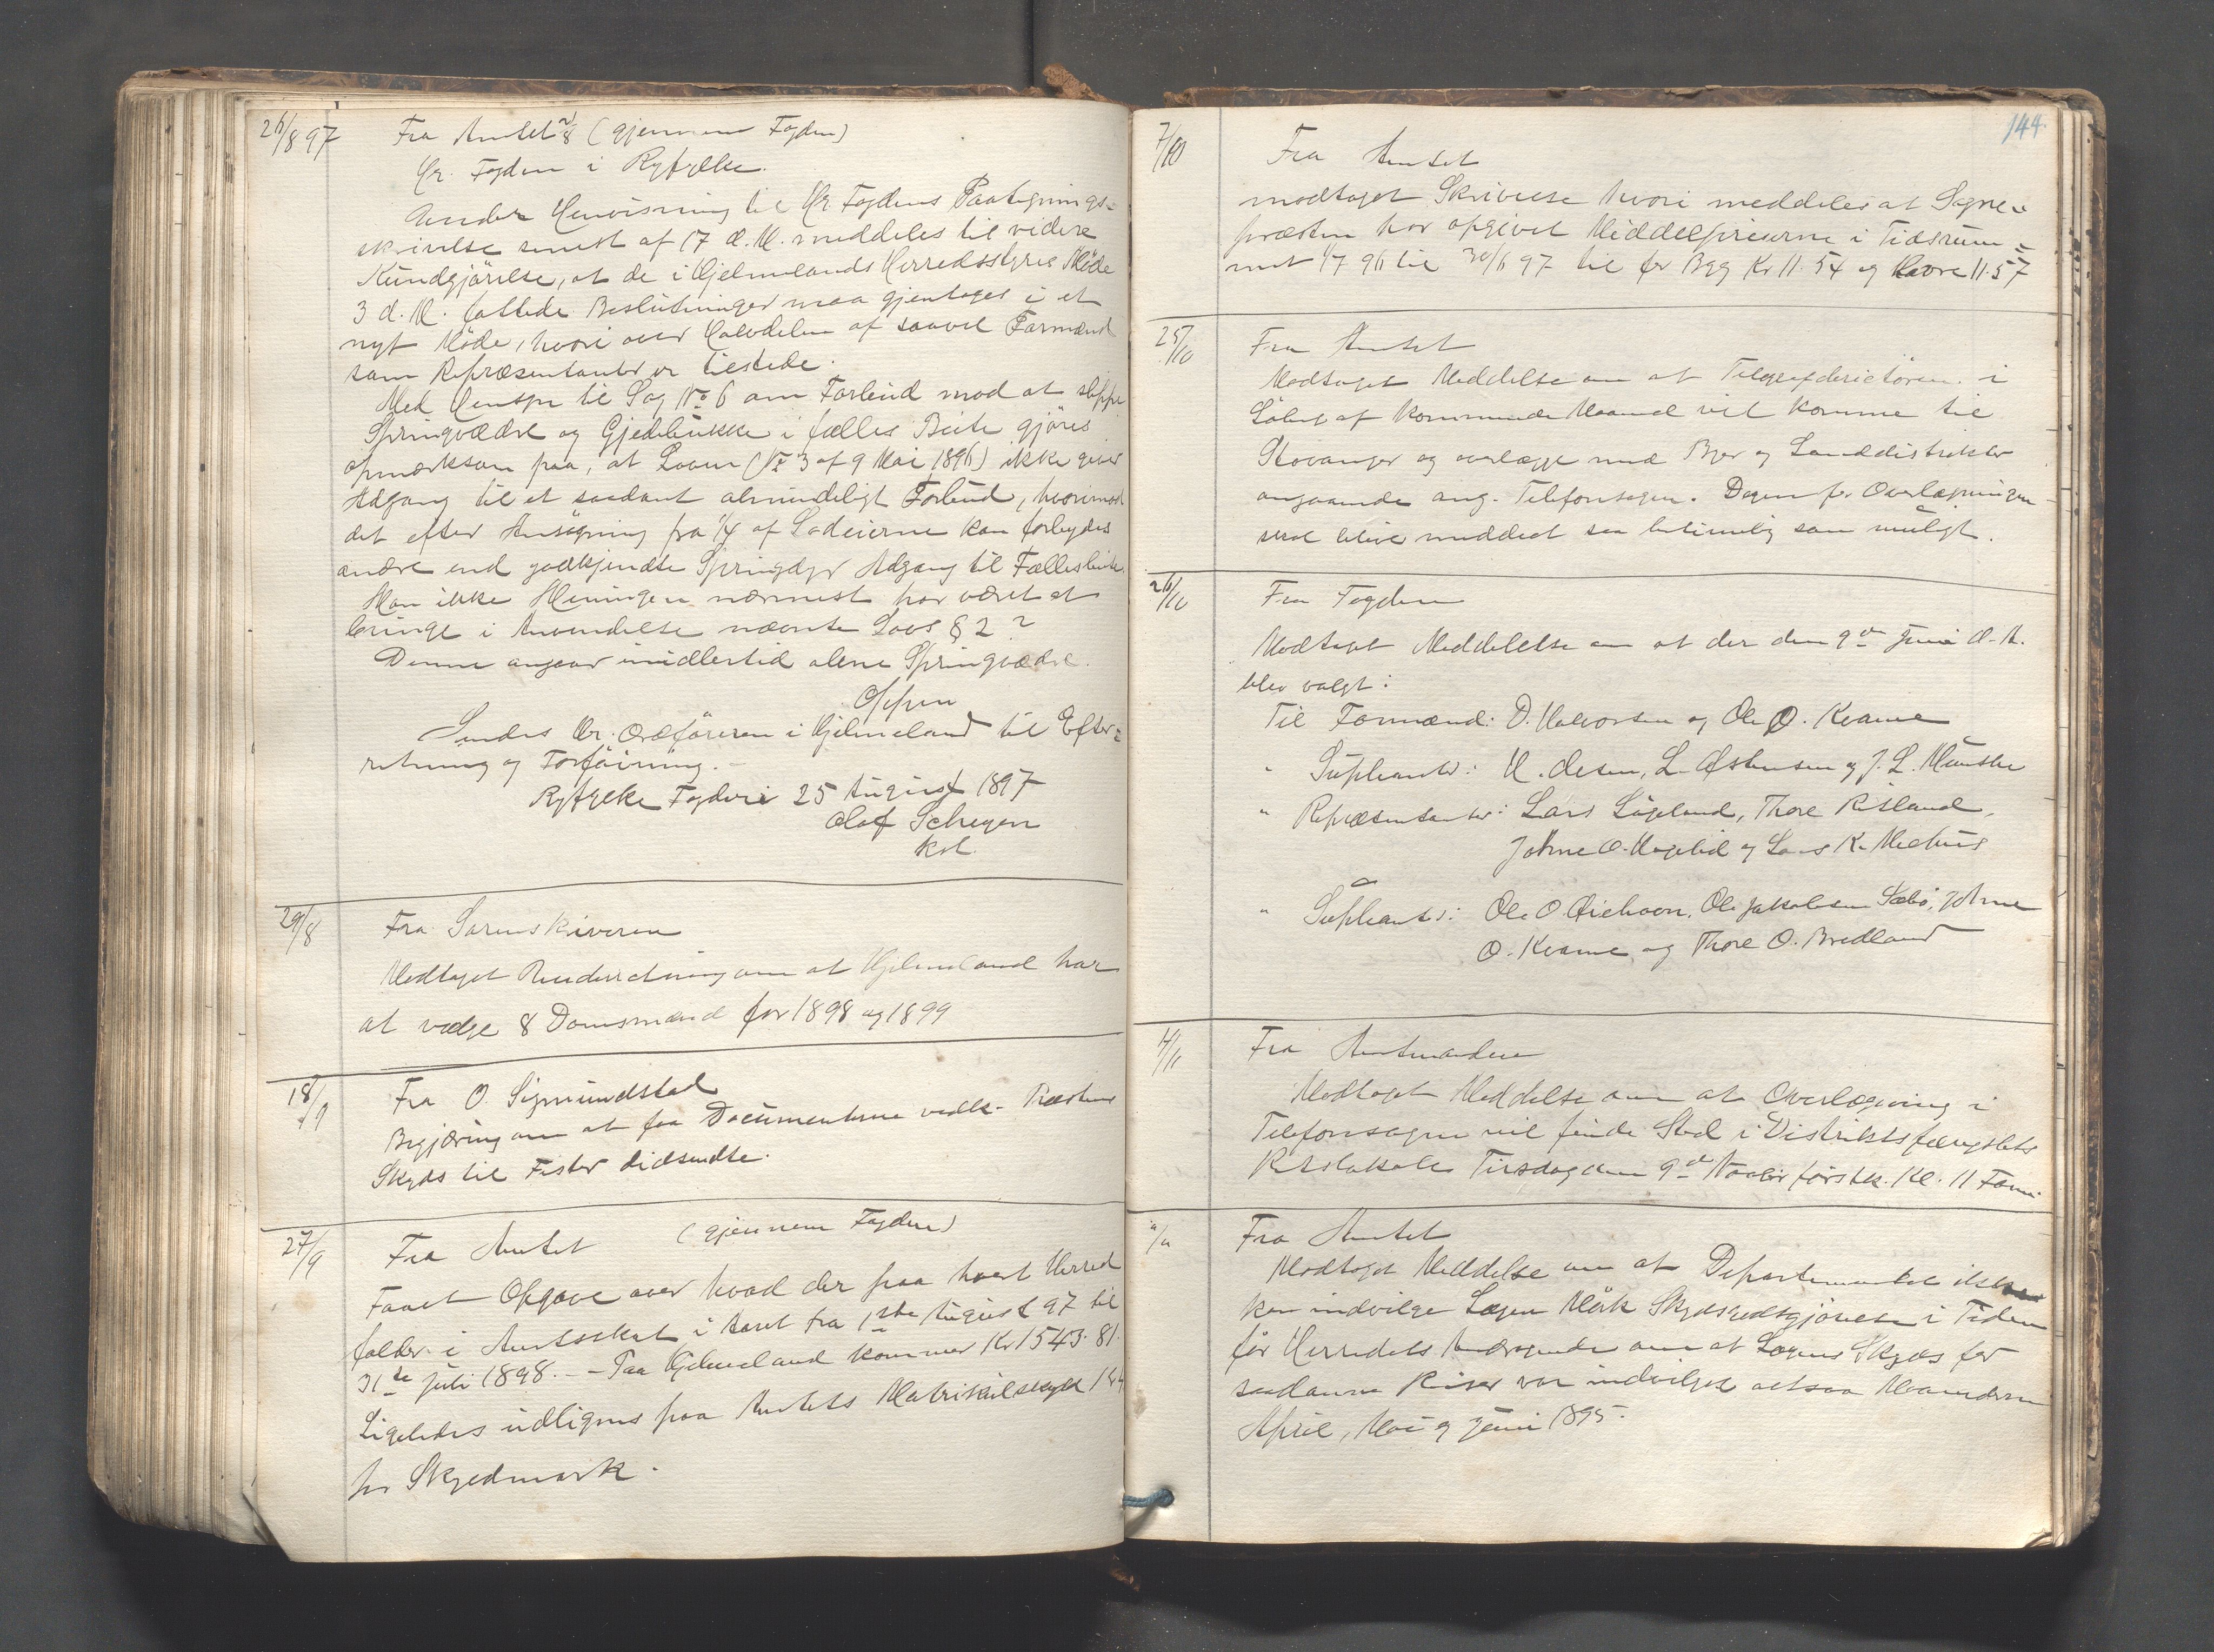 26/8 97 Fra Amtet 21/8 (gjennem Fogden)
Hr. Fogden i Ryfylke.
Under Henvisning til Hr. Fogdens Paategnings-
skrivelse senest af 17 d. M. meddeles til videre
Kundgjörelse, at de i Hjelmelands Herredsstyres Möde
3 d. M. fattede Beslutninger maa gjentages i et
nyt Möde, hvori over Halvdelen af saavel Formænd
som Repræsentanter er tilstede.
Med Hensyn til Sag No 6 om Forbud mod at slippe
Springvædre og Gjedebukke i fælles Beite gjöres
opmærksom paa, at Loven (No 3 af 9 Mai 1896) ikke giver
Adgang til et saadant almindeligt Forbud, hvorimod
det efter Ansögning fra 1/4 af Sædeierne kan forbydes
andre end godkjendte Springdyr Adgang til Fællesbeite.
Mon ikke Meningen nærmest har været at
bringe i Anvendelse nævnte Lovs § 2?
Denne angaar imidlertid alene Springvædre.
Oppen
Sendes Hr. Ordföreren i Hjelmeland til Efter=
retning og Forföining.-
Ryfylke Fogderi 25 August 1897
Olaf Scheyen
kst.
29/8 Fra Sorenskriveren
Modtaget Underretning om at Hjelmeland har
at vælge 8 Domsmænd for 1898 og 1899
18/9 Fra O. Sigmundstad
Begjæring om at faa Documenterne vedk. Præstens
Skyds til Fister didsendte.
27/9 Fra Amtet (gjennem Fogden)
Faaet Opgave over hvad der paa hvert Herred
falder i Amtsskat i Aaret fra 1ste August 97 til
31te Juli 1898. - Paa Hjelmeland kommer Kr 1543.81.
Ligeledes udlignes paa Amtets Matrikulskyld 144
pr Skyldmark.
144.
7/10 Fra Amtet
modtaget Skrivelse hvori meddeles at Sogne=
præsten har opgivet Middelpriserne i Tidsrum=
met 1/7 96 til 30/6 97 til for Byg Kr 11.54 og Havre 11.57
25/10 Fra Amtet
Modtaget Meddelse om at Telegrafderictören i
Löbet af kommende Maaned vil komme til
Stavanger og overlægge med Byer og Landdistrikter
angaaende ang. Telefonsagen. Dagen for Overlægningen
skal blive meddelt saa betimelig som muligt.
26/10 Fra Fogden
Modtaget Meddelelse om at der den 9de Juni d. A.
blev valgt:
Til Formænd: D. Halvorsen og Ole O. Kvame
" Supleanter: H. Olsen, L. Østensen og J. L. Munster
" Repræsentanter: Lars Lögeland, Thore Risland,
Johne O. Hagelid og Lars K. Mæhus
" Supleanter: Ole O. Øiehavn, Ole Jakobsen Sæbö, Johne
O. Kvame og Thore O. Bredland
4/11 Fra Amtmanden
Modtaget Meddelse om at Overlægning i
Telefonsagen vil finde Sted i Distriktsfængslets
Retslokale Tirsdag den 9de Novbr förstk. Kl. 11 Form.
/11 Fra Amtet
Modtaget Meddelse om at Departementet ikke
kan indvilge Lægen Mörk Skydsgodtgjörelse i Tiden
för Herredets Andragende om at Lægens Skyds for
saadanne Reiser var indvilget altsaa Maanederne
April, Mai og Juni 1895.